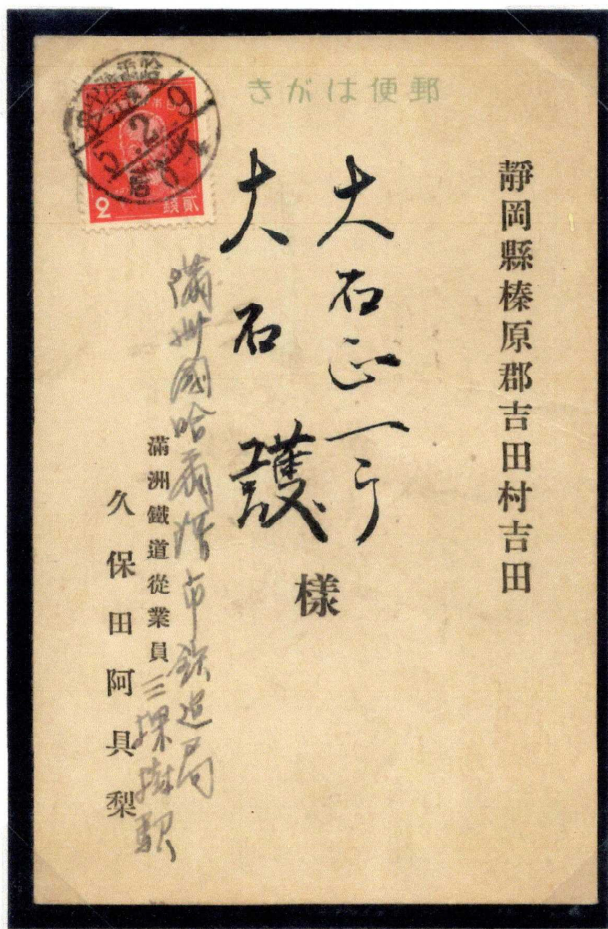 郵便はがき
靜岡縣榛原郡吉田村吉田
大石正一方
大石護
様
満州國哈爾濱市鉄道局
三棵樹駅
滿洲鐵道從業員
久保田阿具梨
2
貳錢